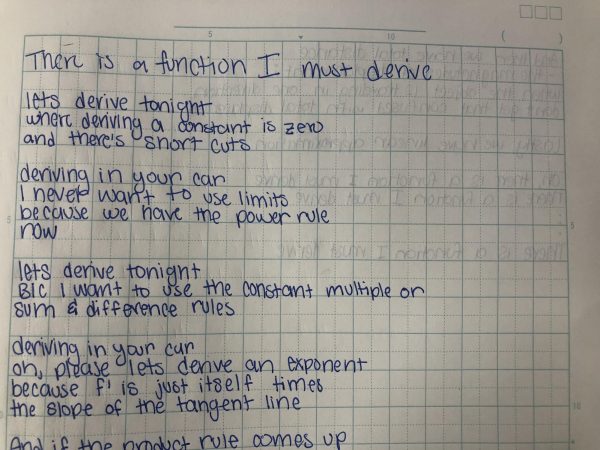 5
10
( )
There is a function I must derive
lets derive tonight
where deriving a constant is zero
and there's short cuts
deriving in your car
I never want to use limits
because we have the power rule
now
5
5
lets derive tonight
B/C I want to use the constant multiple or
sum & difference rules
deriving in your car
oh, please lets derive an exponent
because f' is just itself times
the slope of the tangent line
10
And if the product rule comes up